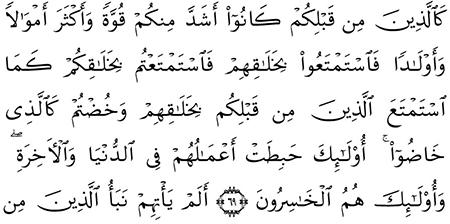 كَٱلَّذِينَ مِن قَبْلِكُمْ كَانُوٓا۟ أَشَدَّ مِنكُمْ قُوَّةً وَأَكْثَرَ أَمْوَٰلًا
وَأَوْلَٰدًا فَٱسْتَمْتَعُوا۟ بِخَلَٰقِهِمْ فَٱسْتَمْتَعْتُم بِخَلَٰقِكُمْ كَمَا
ٱسْتَمْتَعَ ٱلَّذِينَ مِن قَبْلِكُم بِخَلَٰقِهِمْ وَخُضْتُمْ كَٱلَّذِى
خَاضُوٓا۟ ۚ أُو۟لَٰٓئِكَ حَبِطَتْ أَعْمَٰلُهُمْ فِى ٱلدُّنْيَا وَٱلْءَاخِرَةِ ۖ
وَأُو۟لَٰٓئِكَ هُمُ ٱلْخَٰسِرُونَ ﴿٦٩﴾ أَلَمْ يَأْتِهِمْ نَبَأُ ٱلَّذِينَ مِن